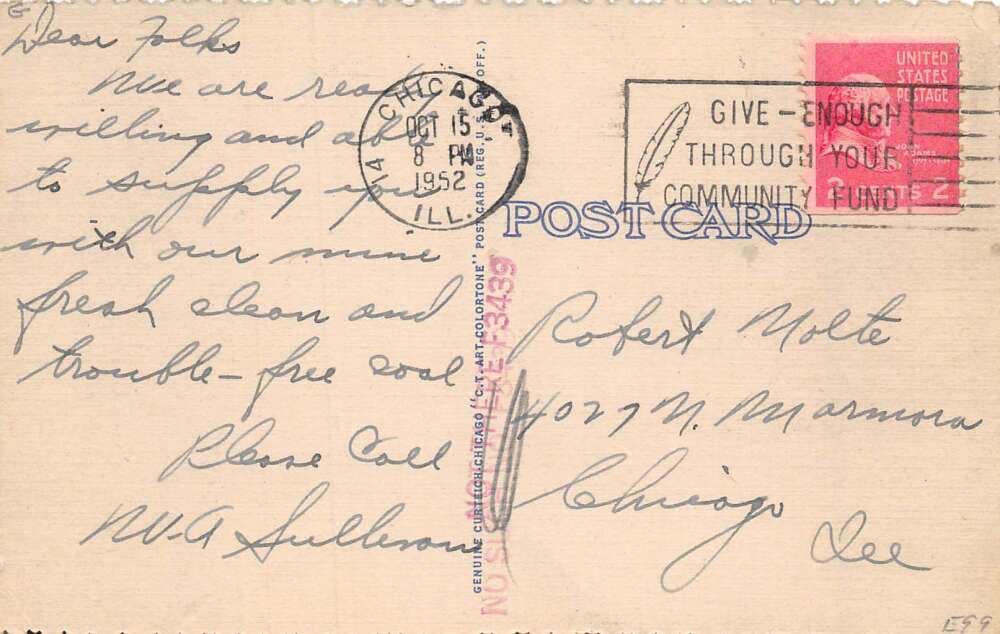 Dear Folks
We are ready
willing and able
to supply you
with our mine
fresh clean and
trouble-free coal
Please Call
Sullivan
CHICAGO
OCT 15
8 PM
1952
ILL.
GIVE - ENOUGH
THROUGH YOUR
COMMUNITY FUND
UNITED
STATES
POSTAGE
JOHN
ADAMS
2 CENTS 2
POST CARD
GENUINE CURTEICH-CHICAGO "C.T. ART-COLORTONE" POST CARD (REG. U.S. OFF.)
F3439
Robert Molte
4027 N. Marmora
Chicago
Ill
E99